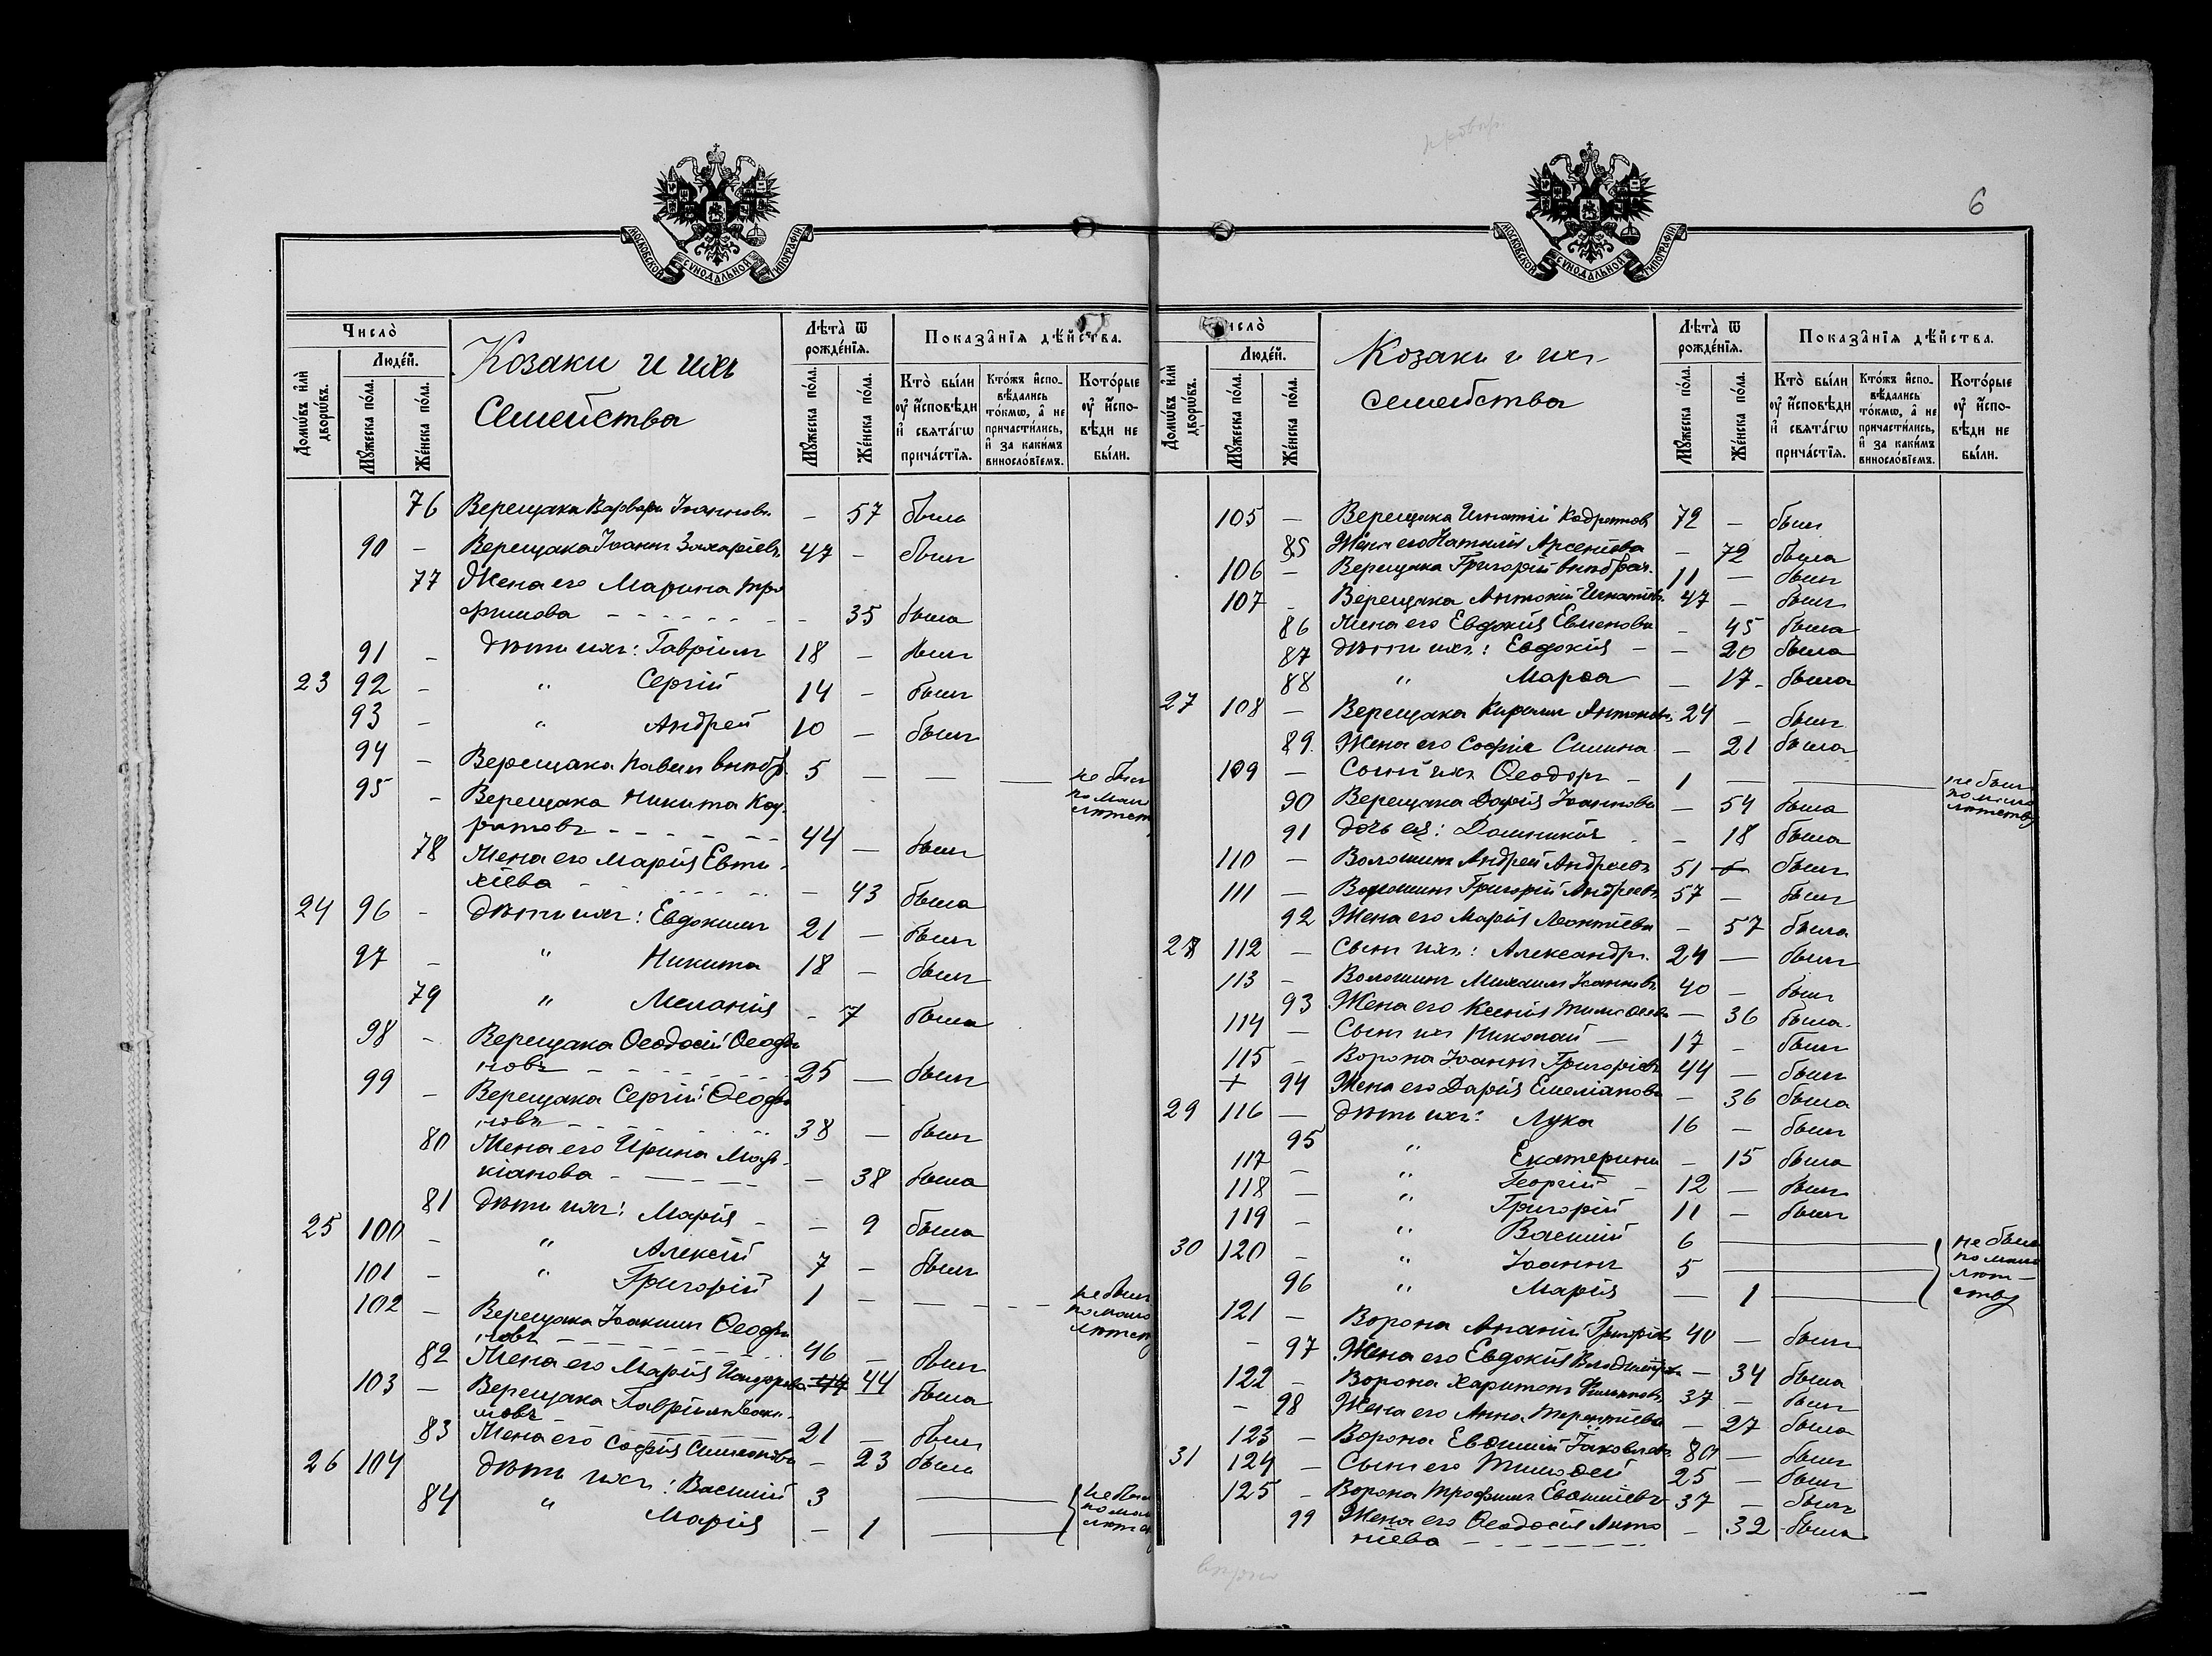 6
МОСКОВСКОЙ СѴНОДАЛЬНОЙ ТИПОГРАФІИ
Число̀
Домѡ́въ и҆лѝ дворѡ́въ.
Люде́й.
Мꙋжеска по́ла.
Же́нска по́ла.
Козаки и ихъ
Семейства
Лѣта̀ ѿ рожде́нїѧ.
Мꙋжеска по́ла.
Же́нска по́ла.
Показа̂нїѧ дѣ́йства.
Кто̀ бы́ли оу҆ и҆сповѣ́ди и҆ свѧта́гѡ прича́стїѧ.
Кто́жъ и҆сповѣ́дались то́кмѡ, а҆ не причасти́лись, и҆ за каки́мъ виносло́вїемъ.
Кото́рые оу҆ и҆сповѣ́ди не бы́ли.
76 Верещака Варвара Іоаннова - 57 была
90 - Верещака Іоаннъ Захаріевъ 47 - былъ
77 Жена его Марина Тро
фимова - - 35 была
91 - Дѣти ихъ: Гавріилъ 18 - былъ
23 92 - " Сергій 14 - былъ
93 - " Андрей 10 - былъ
94 - Верещака Павелъ внѣбр. 5 - - - не былъ по мало лѣтст
95 - Верещака Никита Код
ратовъ - 44 - былъ
78 Жена его Марія Евти
хіева - - 43 была
24 96 - Дѣти ихъ: Евдокимъ 21 - былъ
97 - " Никита 18 - былъ
79 " Меланія - 7 была
98 - Верещака Ѳеодосій Ѳеофи
ловъ - 25 - былъ
99 - Верещака Сергій Ѳеофи
ловъ - 38 - былъ
80 Жена его Ирина Мар
кіанова - - 38 была
81 Дѣти ихъ: Марія - - 9 была
25 100 - " Алексій 7 - былъ
101 - " Григорій 1 - - - не былъ по мало лѣтст
102 - Верещака Іоакимъ Ѳеофи
ловъ - 46 - былъ
82 Жена его Марія Исидорова 44 44 была
103 - Верещака Гавріилъ Іоаки
мовъ - 21 - былъ
83 Жена его Софія Симеонова - 23 была
26 104 Дѣти ихъ: Василій 3 - не были
84 " Марія - 1 - по мало лѣтст
МОСКОВСКОЙ СѴНОДАЛЬНОЙ ТИПОГРАФІИ
Число̀
Домѡ́въ и҆лѝ дворѡ́въ.
Люде́й.
Мꙋжеска по́ла.
Же́нска по́ла.
Козаки и ихъ
Семейства
Лѣта̀ ѿ рожде́нїѧ.
Мꙋжеска по́ла.
Же́нска по́ла.
Показа̂нїѧ дѣ́йства.
Кто̀ бы́ли оу҆ и҆сповѣ́ди и҆ свѧта́гѡ прича́стїѧ.
Кто́жъ и҆сповѣ́дались то́кмѡ, а҆ не причасти́лись, и҆ за каки́мъ виносло́вїемъ.
Кото́рые оу҆ и҆сповѣ́ди не бы́ли.
105 - Верещака Игнатій Кодратовъ 72 - былъ
85 Жена его Наталія Арсеніева - 72 была
106 - Верещака Григорій внѣбрач. 11 - былъ
107 - Верещака Антоній Игнатіевъ 47 - былъ
86 Жена его Евдокія Евменова - 45 была
87 Дѣти ихъ: Евдокія - - 20 была
88 " Марѳа - 17 - была
27 108 - Верещака Кириллъ Антоніевъ 24 - былъ
89 Жена его Софія Силина - 21 была
109 - Сынъ ихъ Ѳеодоръ - 1 - - не былъ по мало лѣтству
90 Верещака Дарія Іоаннова - 54 была
91 Дочь ея: Домникія - 18 была
110 - Волошинъ Андрей Андреевъ 51 - былъ
111 - Волошинъ Григорій Андреевъ 57 - былъ
92 Жена его Марія Леонтіева - 57 была
28 112 - Сынъ ихъ: Александръ. 24 - былъ
113 - Волошинъ Михаилъ Іоанновъ 40 - былъ
93 Жена его Ксенія Тимоѳеева - 36 была
114 - Сынъ ихъ Николай - 17 - былъ
115 - Ворона Іоаннъ Григоріевъ 44 - былъ
+ 94 Жена его Дарія Емеліанова - 36 была
29 116 - Дѣти ихъ: Лука 16 - былъ
95 " Екатерина - 15 была
117 - " Георгій - 12 - былъ
118 - " Григорій 11 - былъ
119 - " Василій 6 - не были
30 120 - " Іоаннъ 5 - по мало лѣт-
96 " Марія - 1 - ству
121 - Ворона Ананій Григоріевъ 40 - былъ
- 97 Жена его Евдокія Владимірова - 34 была
122 - Ворона Харитонъ 37 - былъ
- 98 Жена его Анна Терентіева - 27 была
123 - Ворона Евѳимій Іаковлевъ 80 - былъ
31 124 - Сынъ его Тимоѳей 25 - былъ
125 - Ворона Трофимъ Евѳиміевъ 37 - былъ
99 Жена его Ѳеодосія Анто
ніева - - 32 была